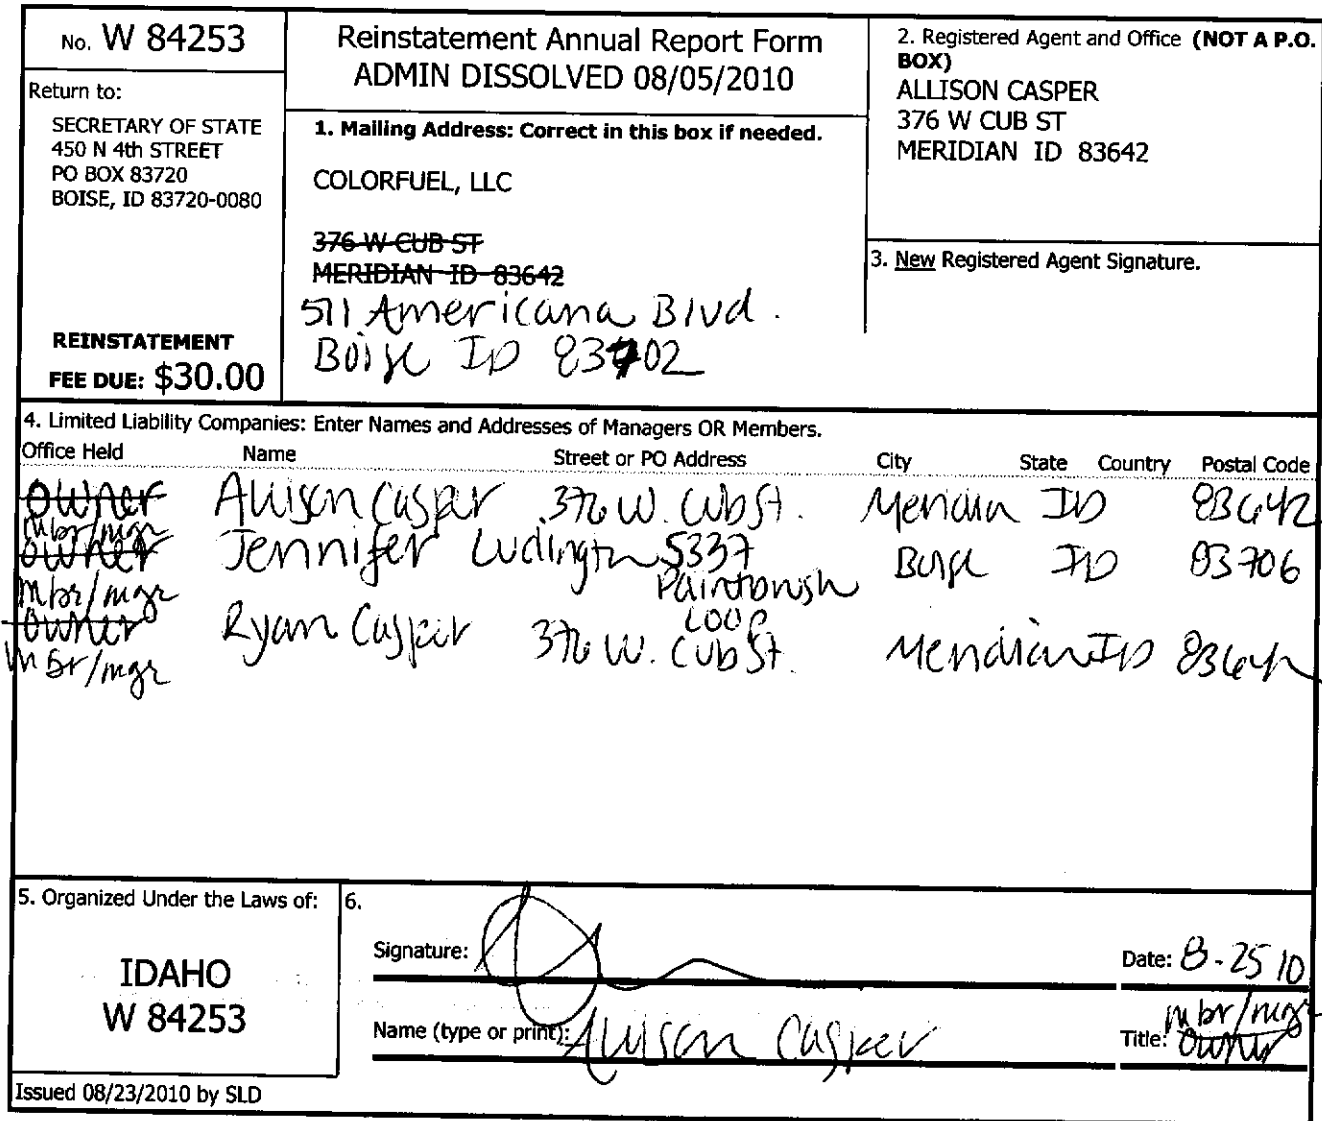 No. W 84253
Return to:
SECRETARY OF STATE
450 N 4th STREET
PO BOX 83720
BOISE, ID 83720-0080
REINSTATEMENT
FEE DUE: $30.00
Reinstatement Annual Report Form
ADMIN DISSOLVED 08/05/2010
1. Mailing Address: Correct in this box if needed.
COLORFUEL, LLC
376 W CUB ST
MERIDIAN ID 83642
511 Americana Blvd.
Boise ID 83702
2. Registered Agent and Office (NOT A P.O.
BOX)
ALLISON CASPER
376 W CUB ST
MERIDIAN ID 83642
3. New Registered Agent Signature.
4. Limited Liability Companies: Enter Names and Addresses of Managers OR Members.
Office Held Name Street or PO Address City State Country Postal Code
owner Allison Casper 376 W. Cub St. Meridian ID 83642
mbr/mgr
owner Jennifer Ludington 5337 Paintbrush Loop Boise ID 83706
mbr/mgr
owner Ryan Casper 376 W. Cub St. Meridian ID 83642
mbr/mgr
5. Organized Under the Laws of:
IDAHO
W 84253
6.
Signature:
Date: 8-25 10
Name (type or print): Allison Casper
mbr/mgr
Title: owner
Issued 08/23/2010 by SLD